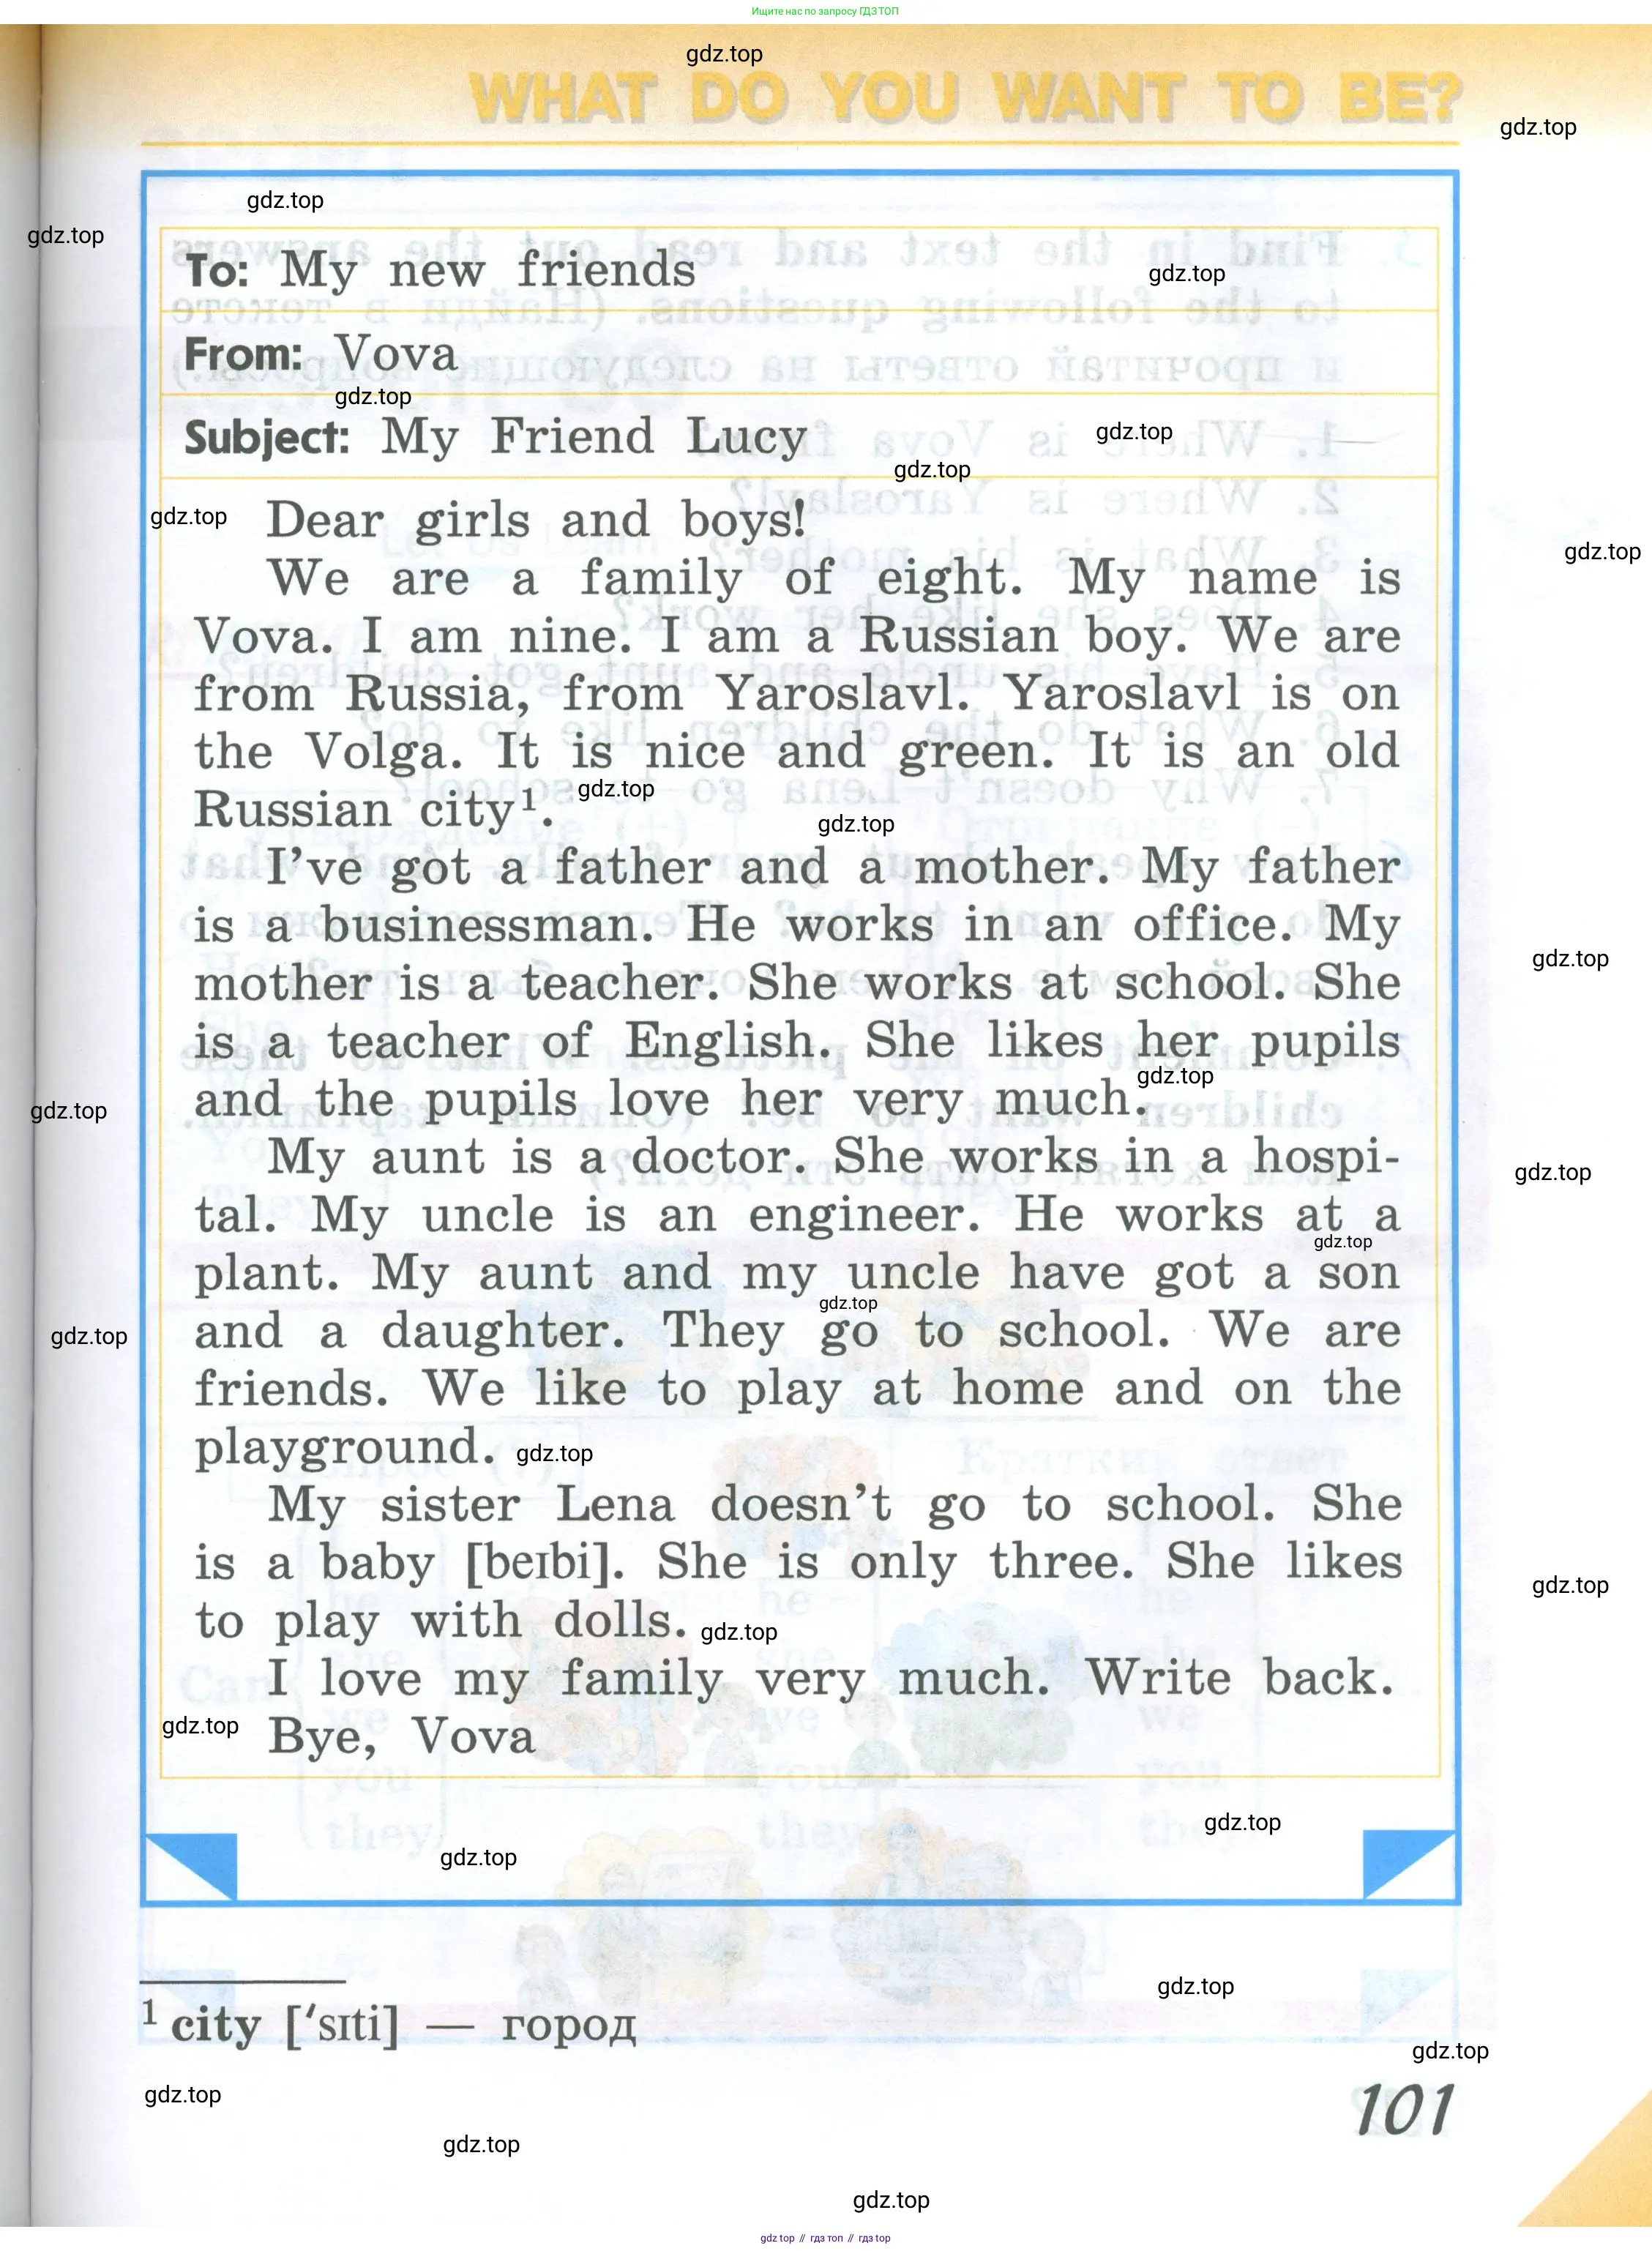 Ищите нас по запросу ГДЗ ТОП
gdz.top
WHAT DO YOU WANT TO BE?
gdz.top
gdz.top
gdz.top
To: My new friends
gdz.top
From: Vova
gdz.top
Subject: My Friend Lucy
gdz.top
gdz.top
gdz.top
Dear girls and boys!
gdz.top
We are a family of eight. My name is
Vova. I am nine. I am a Russian boy. We are
from Russia, from Yaroslavl. Yaroslavl is on
the Volga. It is nice and green. It is an old
Russian city¹.
gdz.top
gdz.top
I've got a father and a mother. My father
is a businessman. He works in an office. My
gdz.top
mother is a teacher. She works at school. She
is a teacher of English. She likes her pupils
gdz.top
and the pupils love her very much.
gdz.top
My aunt is a doctor. She works in a hospi-
gdz.top
tal. My uncle is an engineer. He works at a
gdz.top
plant. My aunt and my uncle have got a son
gdz.top
and a daughter. They go to school. We are
gdz.top
friends. We like to play at home and on the
playground.
gdz.top
My sister Lena doesn't go to school. She
is a baby [beɪbi]. She is only three. She likes
gdz.top
to play with dolls.
gdz.top
I love my family very much. Write back.
gdz.top
Bye, Vova
gdz.top
gdz.top
gdz.top
¹ city [ˈsɪti] — город
gdz.top
gdz.top
101
gdz.top
gdz.top
gdz top // гдз топ // гдз top